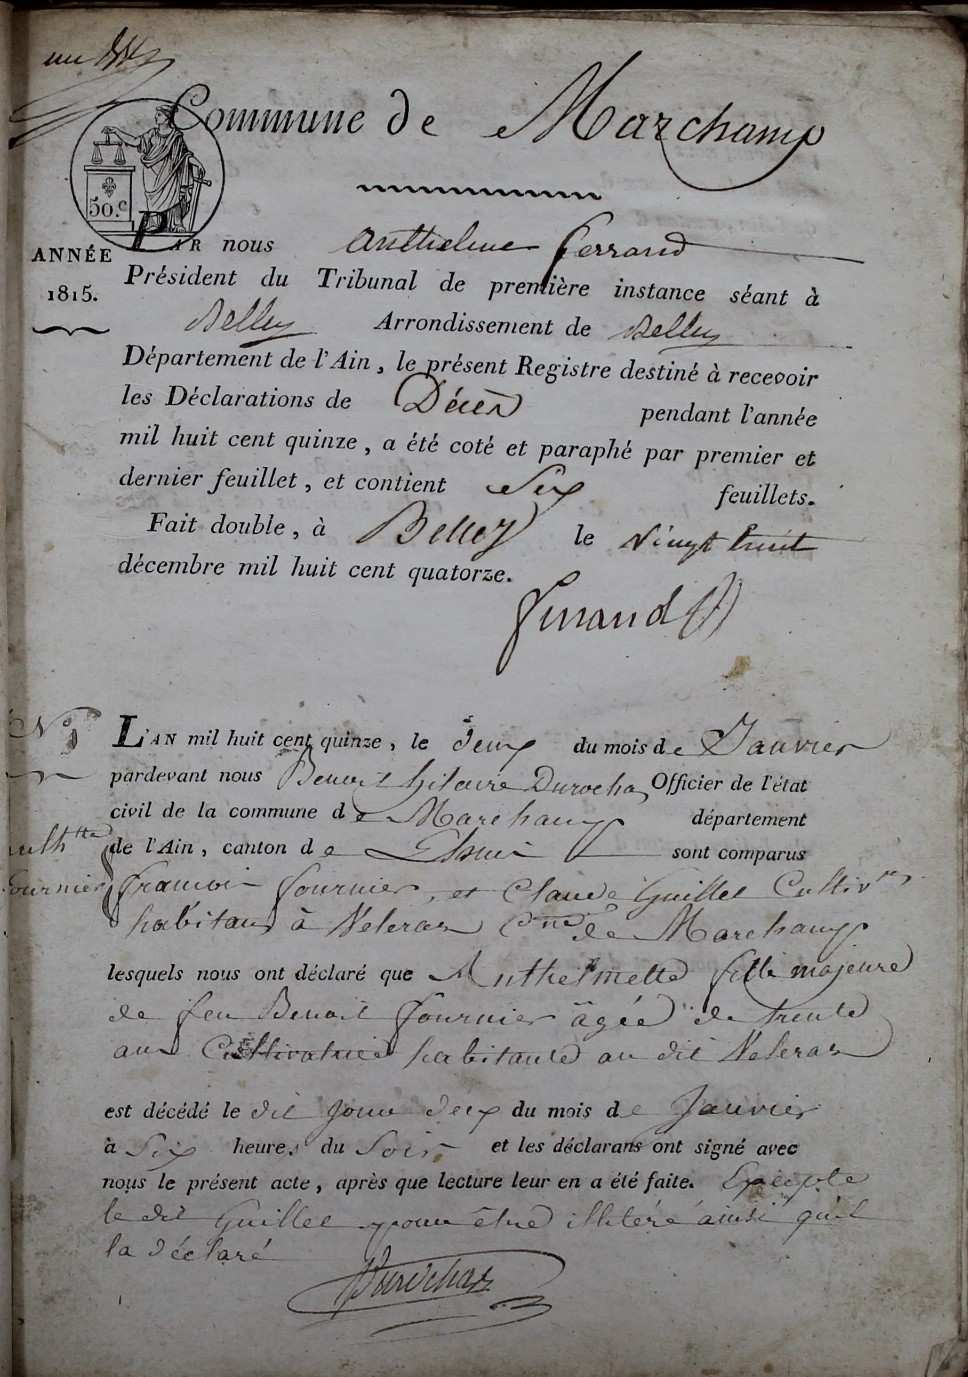 Commune de Marchamp
50.c
ANNÉE
1815.
PAR nous Anthelme Ferrand
Président du Tribunal de première instance séant à
Belley Arrondissement de Belley
Département de l'Ain, le présent Registre destiné à recevoir
les Déclarations de Décès pendant l'année
mil huit cent quinze, a été coté et paraphé par premier et
dernier feuillet, et contient Six feuillets.
Fait double, à Belley le vingt huit
décembre mil huit cent quatorze.
Ferrand
N° 1
L'AN mil huit cent quinze, le deux du mois de Janvier
pardevant nous Benoit hilaire Durochas Officier de l'état
civil de la commune de Marchamp département
de l'Ain, canton de Lhuis sont comparus
Fournier
francois fournier, et Claude Guillet Cultiv.rs
habitans à Veleras Cne de Marchamp
lesquels nous ont déclaré que Anthelmette fille majeure
de feu Benoit fournier âgée de trente
ans Cultivatrice habitante au dit Veleras
est décédé le dit Jour deux du mois de Janvier
à Six heures du Soir et les déclarans ont signé avec
nous le présent acte, après que lecture leur en a été faite. Excepte
le dit Guillet pour être illiteré ainsi qu'il
la déclaré
Durochas